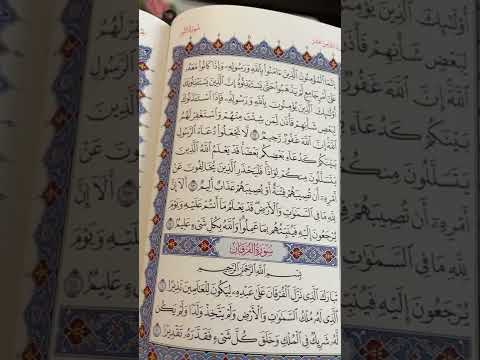 سُورَةُ النُّورِ
إِنَّمَا الْمُؤْمِنُونَ الَّذِينَ ءَامَنُوا بِاللَّهِ وَرَسُولِهِ وَإِذَا كَانُوا مَعَهُ
عَلَىٰ أَمْرٍ جَامِعٍ لَّمْ يَذْهَبُوا حَتَّىٰ يَسْتَـْٔذِنُوهُ إِنَّ الَّذِينَ يَسْتَـْٔذِنُونَكَ
أُو۟لَٰٓئِكَ الَّذِينَ يُؤْمِنُونَ بِاللَّهِ وَرَسُولِهِ فَإِذَا اسْتَـْٔذَنُوكَ
لِبَعْضِ شَأْنِهِمْ فَأْذَن لِّمَن شِئْتَ مِنْهُمْ وَاسْتَغْفِرْ لَهُمُ
اللَّهَ إِنَّ اللَّهَ غَفُورٌ رَّحِيمٌ ٦٢ لَّا تَجْعَلُوا دُعَآءَ الرَّسُولِ
بَيْنَكُمْ كَدُعَآءِ بَعْضِكُم بَعْضًا قَدْ يَعْلَمُ اللَّهُ الَّذِينَ
يَتَسَلَّلُونَ مِنكُمْ لِوَاذًا فَلْيَحْذَرِ الَّذِينَ يُخَالِفُونَ عَنْ
أَمْرِهِ أَن تُصِيبَهُمْ فِتْنَةٌ أَوْ يُصِيبَهُمْ عَذَابٌ أَلِيمٌ ٦٣ أَلَآ إِنَّ
لِلَّهِ مَا فِي السَّمَٰوَٰتِ وَالْأَرْضِ قَدْ يَعْلَمُ مَآ أَنتُمْ عَلَيْهِ وَيَوْمَ
يُرْجَعُونَ إِلَيْهِ فَيُنَبِّئُهُم بِمَا عَمِلُوا وَاللَّهُ بِكُلِّ شَيْءٍ عَلِيمٌ ٦٤
سُورَةُ الْفُرْقَانِ
بِسْمِ اللَّهِ الرَّحْمَٰنِ الرَّحِيمِ
تَبَارَكَ الَّذِي نَزَّلَ الْفُرْقَانَ عَلَىٰ عَبْدِهِ لِيَكُونَ لِلْعَٰلَمِينَ نَذِيرًا ١
الَّذِي لَهُ مُلْكُ السَّمَٰوَٰتِ وَالْأَرْضِ وَلَمْ يَتَّخِذْ وَلَدًا وَلَمْ يَكُن
لَّهُ شَرِيكٌ فِي الْمُلْكِ وَخَلَقَ كُلَّ شَيْءٍ فَقَدَّرَهُ تَقْدِيرًا ٢